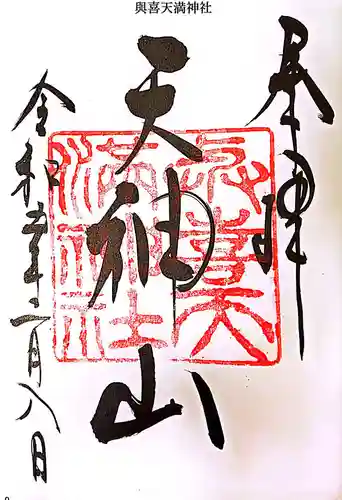 與喜天満神社
奉拝
天神山
令和六年二月八日
與喜天
満神社